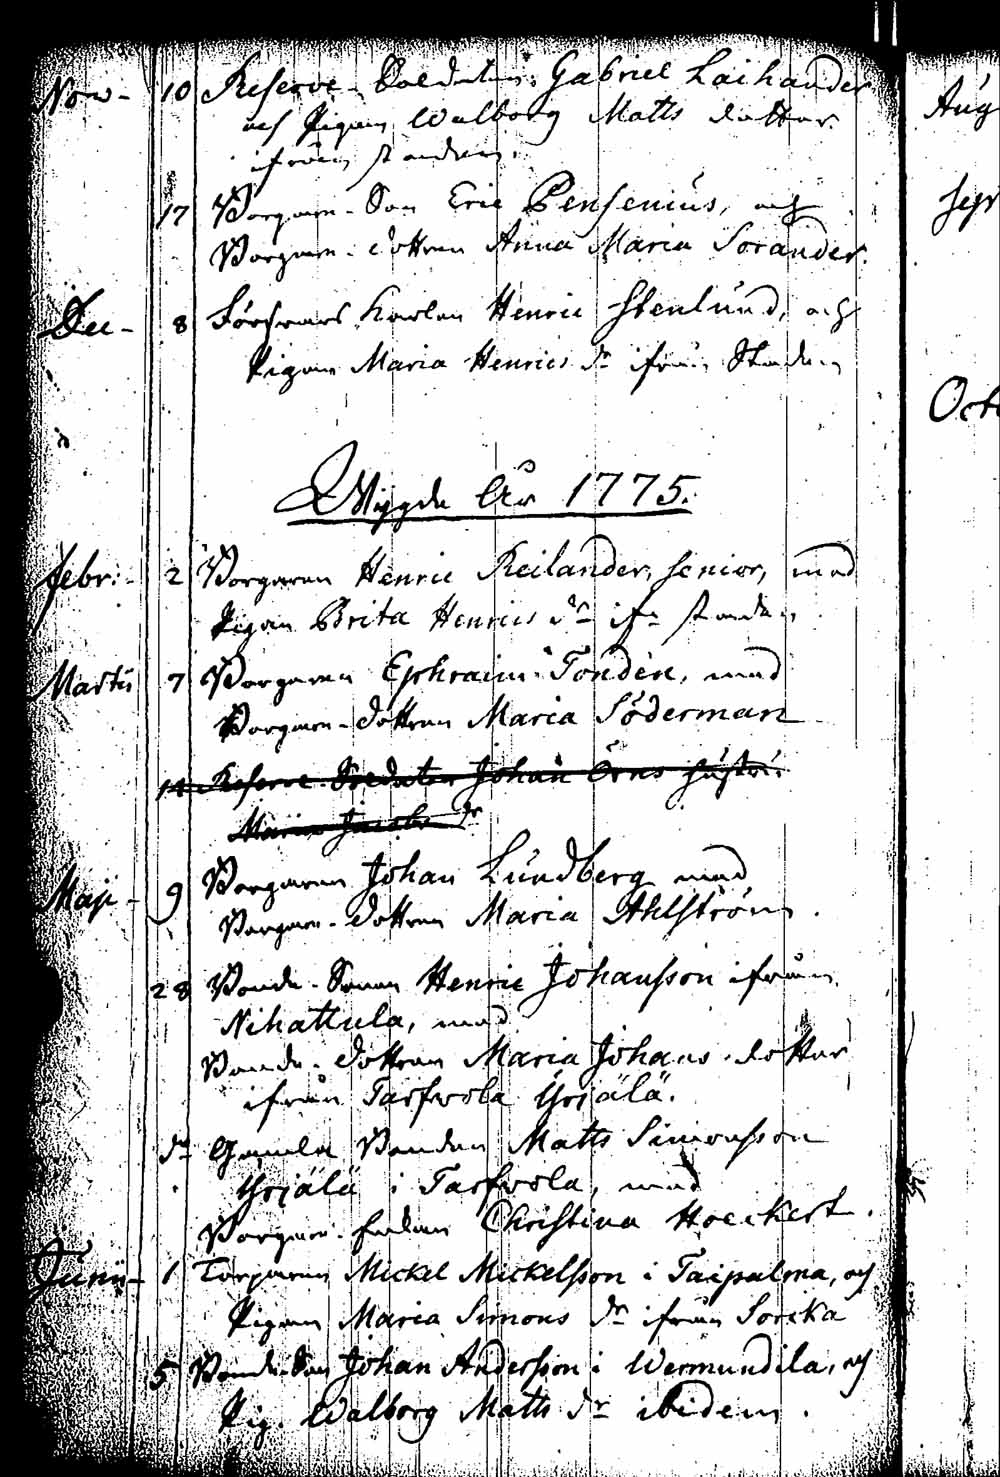 Nov - 10 Reserve-Soldaten Gabriel Laihander
och Pigan Walborg Matts dotter
ifrån staden.
17 Borgare-Son Eric Pensenius, och
Borgare-dottren Anna Maria Sorander.
Dec - 8 Försvars Karlen Henric Stenlund, och
Pigan Maria Henrics dr ifrån Staden
Wigde År 1775.
Febr: - 2 Borgaren Henric Keilander, senior, med
Pigan Brita Henrics dr ifn staden
Martii 7 Borgaren Ephraim Tondèn, med
Borgare-dottren Maria Söderman
14 Reserve-Soldaten Johan Örns hustru
Maria Jacobs dr
Maji - 9 Borgaren Johan Lundberg med
Borgare-dottren Maria Ahlström.
28 Bonde-Sonen Henric Johansson ifrån
Nihattula, med
Bonde-dottren Maria Johans dotter
ifrån Tarfvola Yrjälä.
dn Gamla Bonden Matts Simonsson
Yrjälä i Tarfvola, med
Borgare-Enkan Christina Hoeckert.
Junii - 1 Torparen Mickel Mickelsson i Taipalma, och
Pigan Maria Simons dr ifrån Sorcka
5 Bonde-Son Johan Andersson i Wermundila, och
Pig. Walborg Matts dr ibidem.
Aug
Sept
Oct